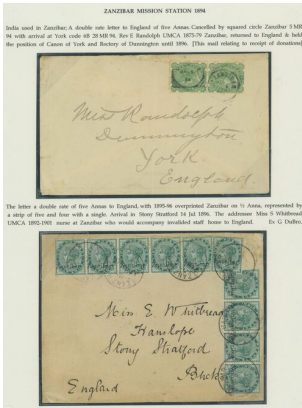 ZANZIBAR MISSION STATION 1894
India used in Zanzibar; A double rate letter to England of five Annas. Cancelled by squared circle Zanzibar 5 MR
94 with arrival at York code 6B 28 MR 94. Rev E Randolph UMCA 1875-79 Zanzibar, returned to England & held
the position of Canon of York and Rectory of Dunnington until 1896. [This mail relating to receipt of donations]
Miss Randolph
Dunnington
York
England
The letter a double rate of five Annas to England, with 1895-96 overprinted Zanzibar on ½ Anna, represented by
a strip of five and four with a single. Arrival in Stony Stratford 14 Jul 1896. The addressee Miss S Whitbread
UMCA 1892-1901 nurse at Zanzibar who would accompany invalided staff home to England. Ex G DuBro.
Miss E. Whitbread
Hanslope
Stony Stratford
Bucks
England